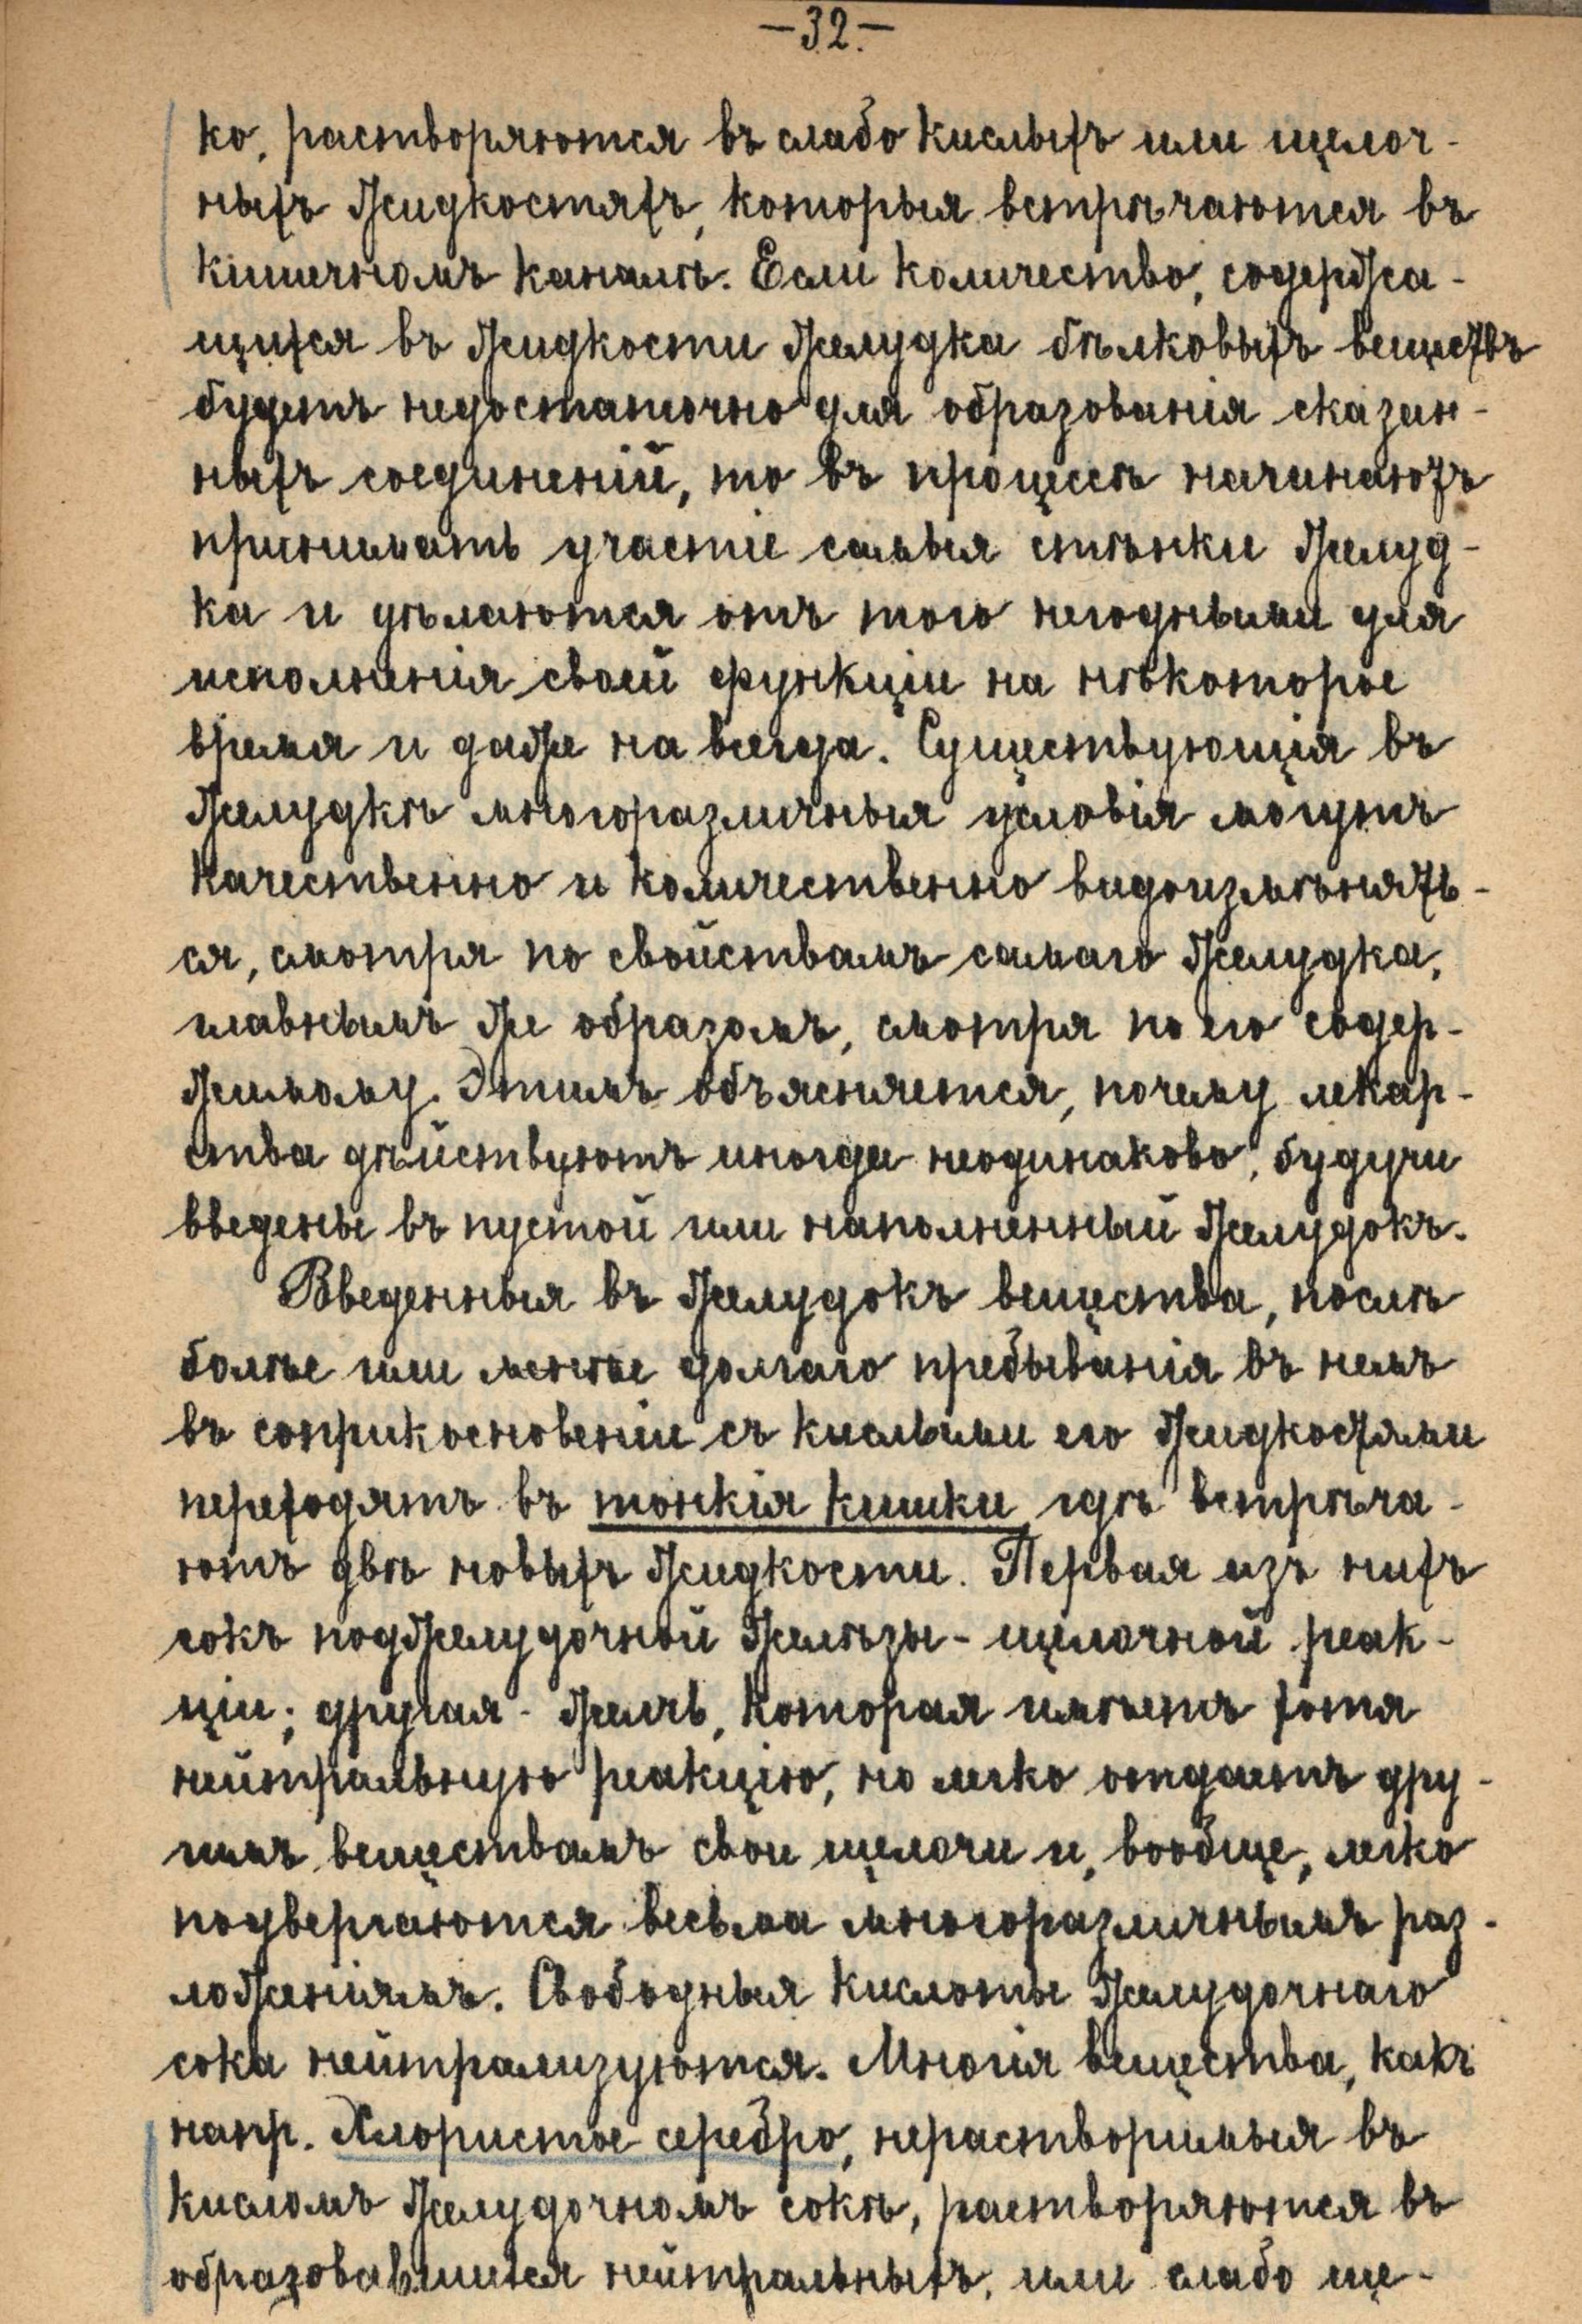 —32.—
ко, растворяются въ слабо кислыхъ или щелоч-
ныхъ жидкостяхъ, которыя встрѣчаются въ
кишечномъ каналѣ. Если количество, содержа-
щихся въ жидкости желудка бѣлковыхъ веществъ
будетъ недостаточно для образованія сказан-
ныхъ соединеній, то въ процессѣ начинаютъ
принимать участіе самыя стѣнки желуд-
ка и дѣлаются отъ того негодными для
исполненія своей функціи на нѣкоторое
время и даже на всегда. Существующія въ
желудкѣ многоразличныя условія могутъ
качественно и количественно видоизмѣнять-
ся, смотря по свойствамъ самаго желудка,
главнымъ же образомъ, смотря по его содер-
жимому. Этимъ объясняется, почему лекар-
ства дѣйствуютъ иногда неодинаково, будучи
введены въ пустой или наполненный желудокъ.
Введенныя въ желудокъ вещества, послѣ
болѣе или менѣе долгаго пребыванія въ немъ
въ соприкосновеніи съ кислыми его жидкостями
переходятъ въ тонкія кишки, гдѣ встрѣча-
ютъ двѣ новыхъ жидкости. Первая изъ нихъ
сокъ поджелудочной желѣзы - щелочной реак-
ціи; другая - желчь, которая имѣетъ хотя
нейтральную реакцію, но легко отдаетъ дру-
гимъ веществамъ свои щелочи и, вообще, легко
подвергаются весьма многоразличнымъ раз-
ложеніямъ. Свободныя кислоты желудочнаго
сока нейтрализуются. Многія вещества, какъ
напр. Хлористое серебро, нерастворимыя въ
кисломъ желудочномъ сокѣ, растворяются въ
образовавшихся нейтральныхъ, или слабо ще-